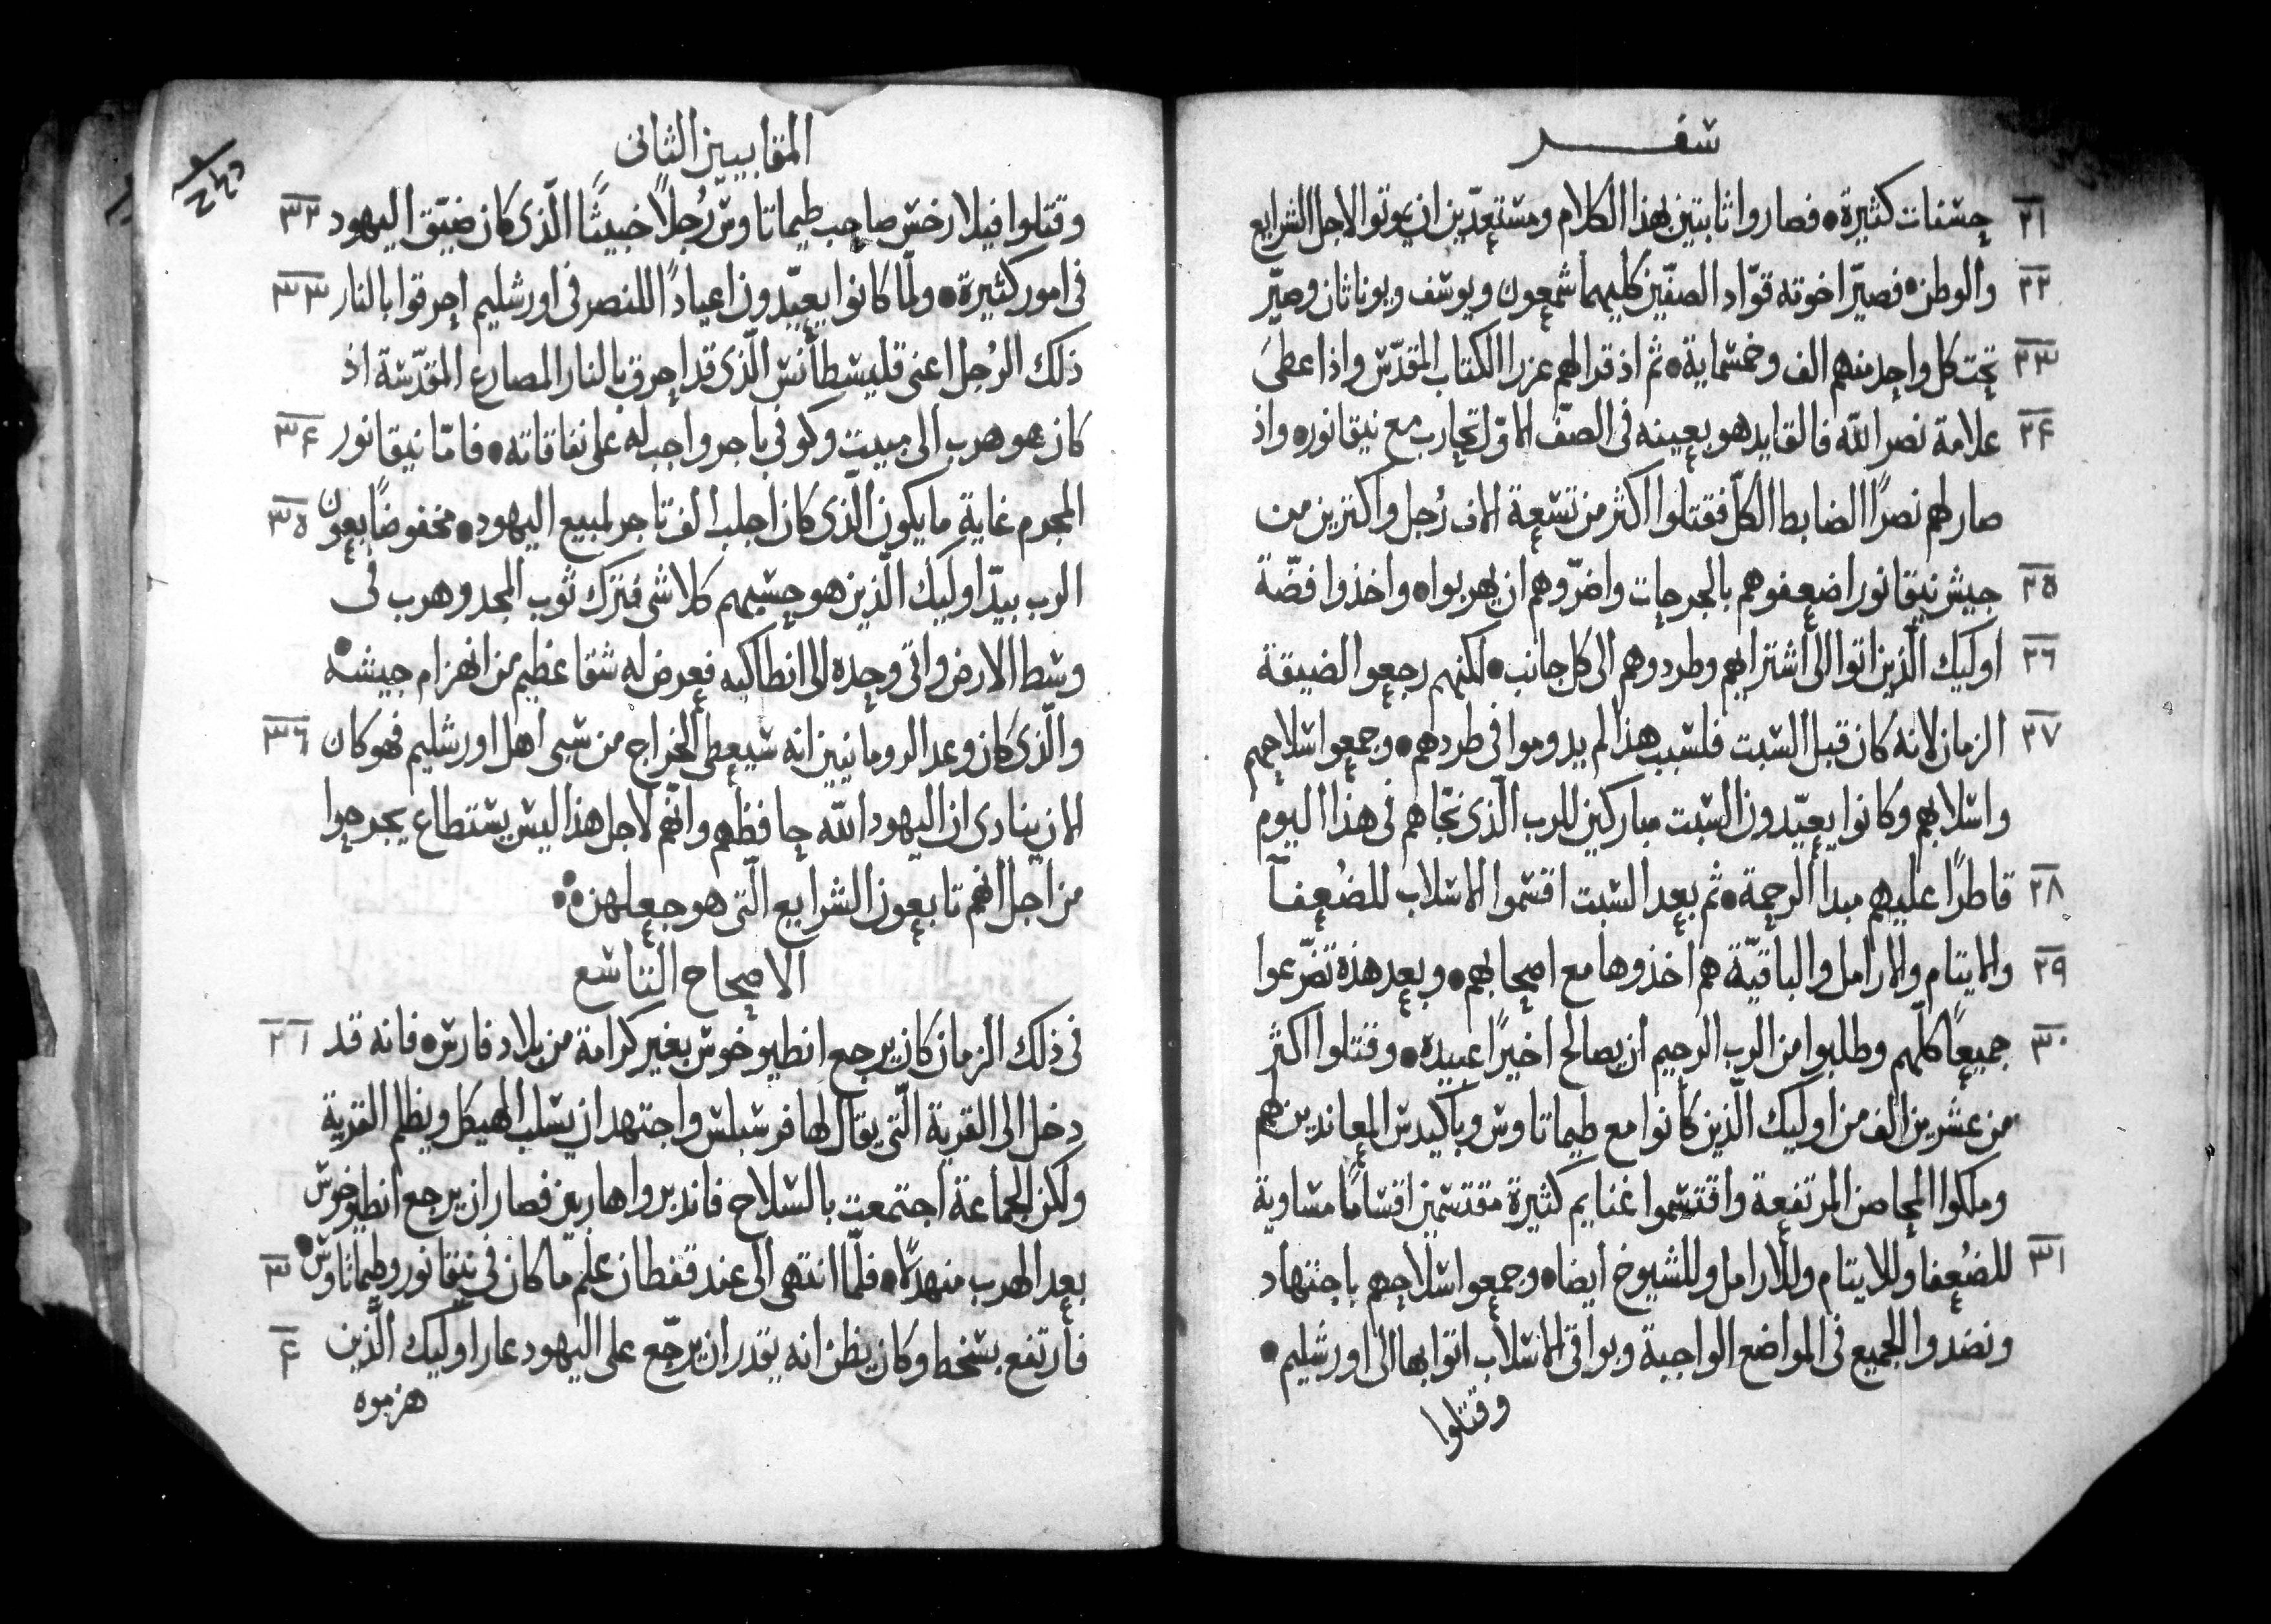 سفر
٢١ حسنات كثيرة • فصاروا ثابتين بهذا الكلام ومستعدّين ان يموتوا لاجل الشرايع
٢٢ والوطن • فصيّر اخوته قوّاد الصفّين كليهما شمعون ويوسف ويوناثان وصيّر
٢٣ تحت كل واحد منهم الف وخمسماية • ثم اذ قرا لهم عزرا الكتاب المقدّس واذ اعطى
٢۴ علامة نصر الله فالقايد هو بعينه في الصفّ الاوّل تحارب مع نيقانور • واذ
صار لهم نصرًا الضابط الكلّ فقتلوا اكثر من تسعة الاف رُجل واكثرين من
٢٥ جيش نيقانور اضعفوهم بالجرحات واضرّوهم ان يهربوا • واخذوا فضّة
٢٦ اوليك الّذين اتوا الى اشترايهم وطردوهم الى كل جانب • لكنهم رجعوا لضيقة
٢٧ الزمان لانه كان قبل السبت فلسبب هذا لم يدوموا في طردهم • وجمعوا سلاحهم
واسلابهم وكانوا يعيّدون السبت مباركين للرب الّذى نجّاهم في هذا اليوم
٢٨ قاطرًا عليهم مبدا الرحمة • ثم بعد السبت اقسموا الاسلاب للضُعفآ
٢٩ والايتام والارامل والباقيّة هم اخذوها مع اصحابهم • وبعد هذه تضرّعوا
٣٠ جميعًا كلّهم وطلبوا من الرب الرحيم ان يصالح اخيرًا عبيده • وقتلوا اكثر
من عشرين الف من اوليك الّذين كانوا مع طيماتاوس وباكيدس المعاندين لهم
وملكوا المحاصن المرتفعة واقتسموا غنايم كثيرة مقتسمين اقسامًا مساوية
٣١ للضُعفا وللايتام وللارامل وللشيوخ ايضا • وجمعوا سلاحهم باجتهاد
ونضدوا الجميع في المواضع الواجبة وبواقي الاسلاب اتوا بها الى اورشليم •
وقتلوا
المقابيين الثانى
وقتلوا فيلارخس صاحب طيماتاوس رُجلًا خبيثًا الّذى كان ضيّق اليهود ٣٢
في امور كثيرة • ولمّا كانوا يعيّدون اعيادًا للنصر في اورشليم احرقوا بالنار ٣٣
ذلك الرُجل اعنى قليسطانس الّذى قد احرق بالنار المصارع المقدّسة اذ
كان هو هرب الى مبيت وكوفي باجر واجب له على نفاقاته • فامّا نيقانور ٣۴
المجرم غاية ما يكون الّذى كان اجلب الف تاجر لمبيع اليهود • مخفوضًا بعون ٣٥
الرب بيدّ اوليك الّذين هو حسبهم كلاشى فترك ثوب المجد وهرب في
وسط الارض واتى وحده الى انطاكيه فعرض له شقا عظيم من انهزام جيشه •
والّذى كان وعد الرومانيين انه سيعطى الخراج من سبى اهل اورشليم فهو كان ٣٦
الان ينادى ان اليهود الله حافظهم وانهم لاجل هذا ليس يستطاع يجرحوا
من اجل انهم تابعون الشرايع الّتى هو جعلهن
الاصحاح التاسع
في ذلك الزمان كان يرجع انطيوخوس بغير كرامة من بلاد فارس • فانه قد ١ ٢
دخل الى القرية الّتى يقال لها فرسبلس واجتهد ان يسلب الهيكل ويظلم القرية
ولكن الجماعة اجتمعت بالسلاح فاندبروا هاربين فصار ان يرجع انطيوخوس
بعد الهرب منهدلًا • فلمّا انتهى الى عند قفطان علم ما كان في نيقانور وطيماتاوس • ٣
فارتفع بسخط وكان يظن انه يقدر ان يرجّع على اليهود عار اوليك الّذين ۴
هزموه